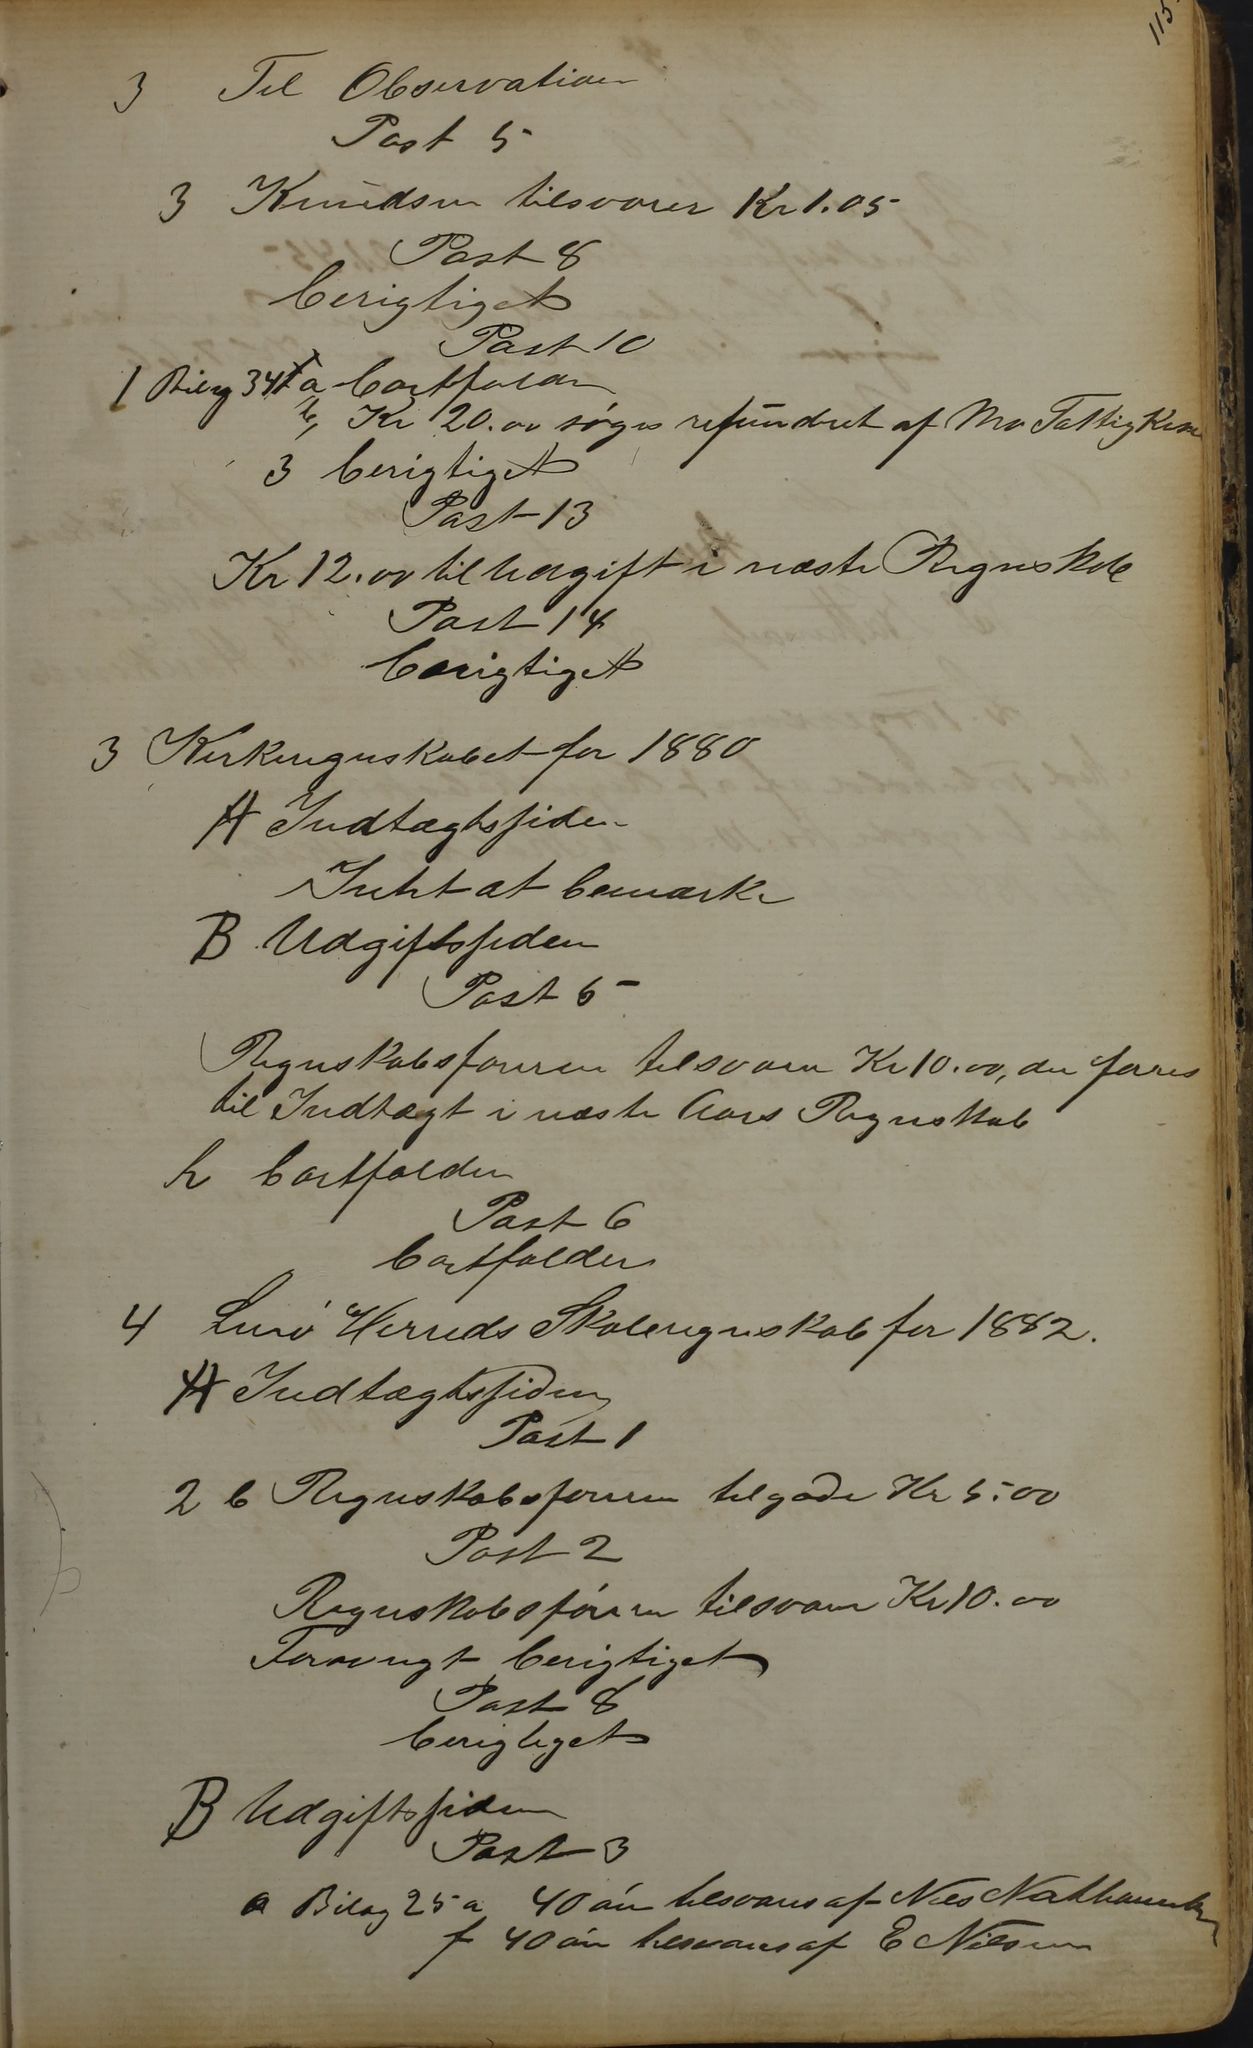 115
3 Til Observation
Post 5
3 Knudsen tilsvarer Kr 1.05
Post 8
berigtiget
Post 10
1 Bilag 34 a bortfalder
b, Kr 20.00 søges refundret af Mo Fattigkasse
3 berigtiget
Post 13
Kr 12.00 til Udgift i næste Regnskab
Post 14
berigtiget
3 Kirkeregnskabet for 1880
A Indtægtssiden
Intet at bemærke
B Udgiftssiden
Post 5
Regnskabsføreren tilsvarer Kr 10.00, der føres
til Indtægt i næste Aars Regnskab
h bortfalder
Post 6
bortfalder
4 Lurø Herreds Skoleregnskab for 1882.
A Indtægtssiden
Post 1
2 b Regnskabsføreren tilgode Kr 5.00
Post 2
Regnskabsføreren tilsvarer Kr 10.00
Forøvrigt berigtiget
Post 8
berigtiget
B Udgiftssiden
Post 3
a Bilag 25 a 40 øre tilsvares af Niels Nathanielsen
f 40 øre tilsvares af E Nilsen